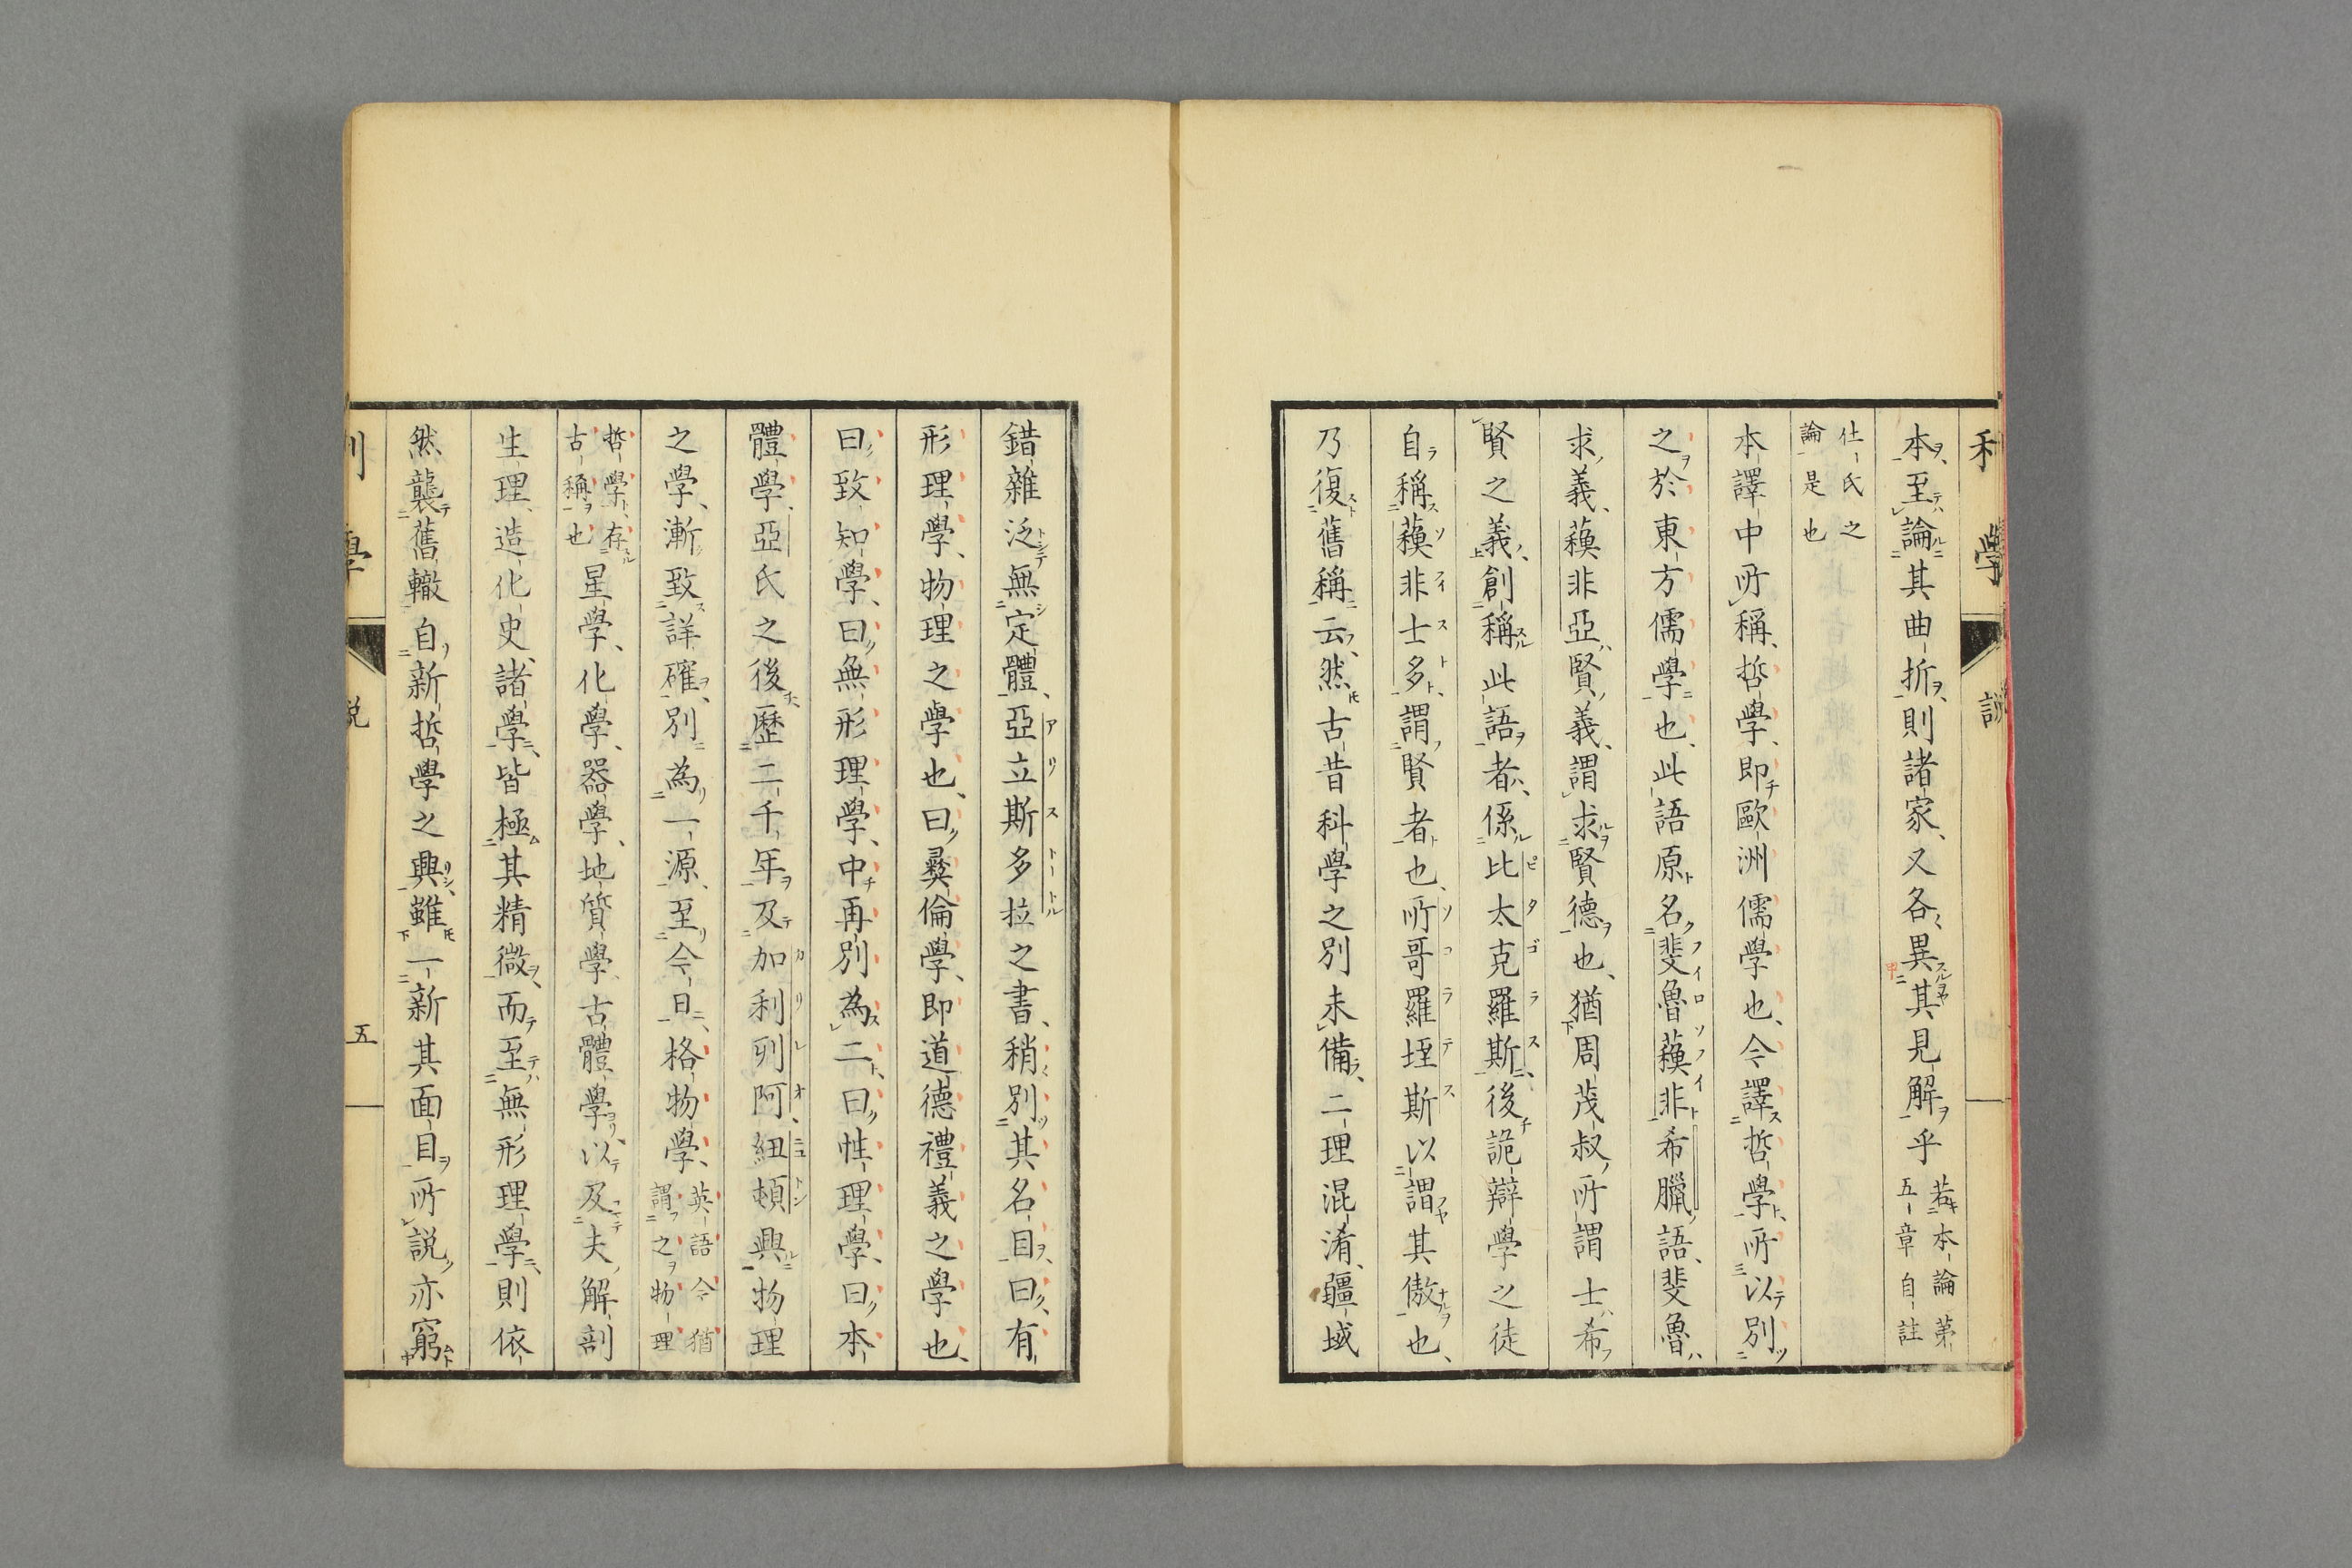 利學 說
本、至論其曲折、則諸家、又各異其見解乎若本論第五章自註
仕氏之論是也
本譯中所稱、哲學、即歐洲儒學也、今譯哲學、所以別
之於東方儒學也、此語原名斐魯蘓非希臘語、斐魯
求義、蘓非亞、賢義、謂求賢德也、猶周茂叔所謂士希
賢之義、創稱此語者、係比太克羅斯、後詭辯學之徒
自稱蘓非士多、謂賢者也、所哥羅垤斯以謂其傲也、
乃復舊稱云、然古昔科學之別未備、二理混淆、疆域
錯雜泛無定體、亞立斯多拉之書、稍別其名目、曰、有
形理學、物理之學也、曰彜倫學、即道德禮義之學也、
曰致知學、曰無形理學、中再別為二、曰性理學、曰本
體學、亞氏之後、歷二千年、及加利列阿、紐頓興、物理
之學、漸致詳確、別為一源、至今日、格物學、英語今猶謂之物理
哲學、存古稱也星學、化學、器學、地質學、古體學、以及夫解剖
生理、造化史、諸學、皆極其精微、而至無形理學、則依
然襲舊轍自新哲學之興、雖一新其面目所說亦窮
利學 說 五